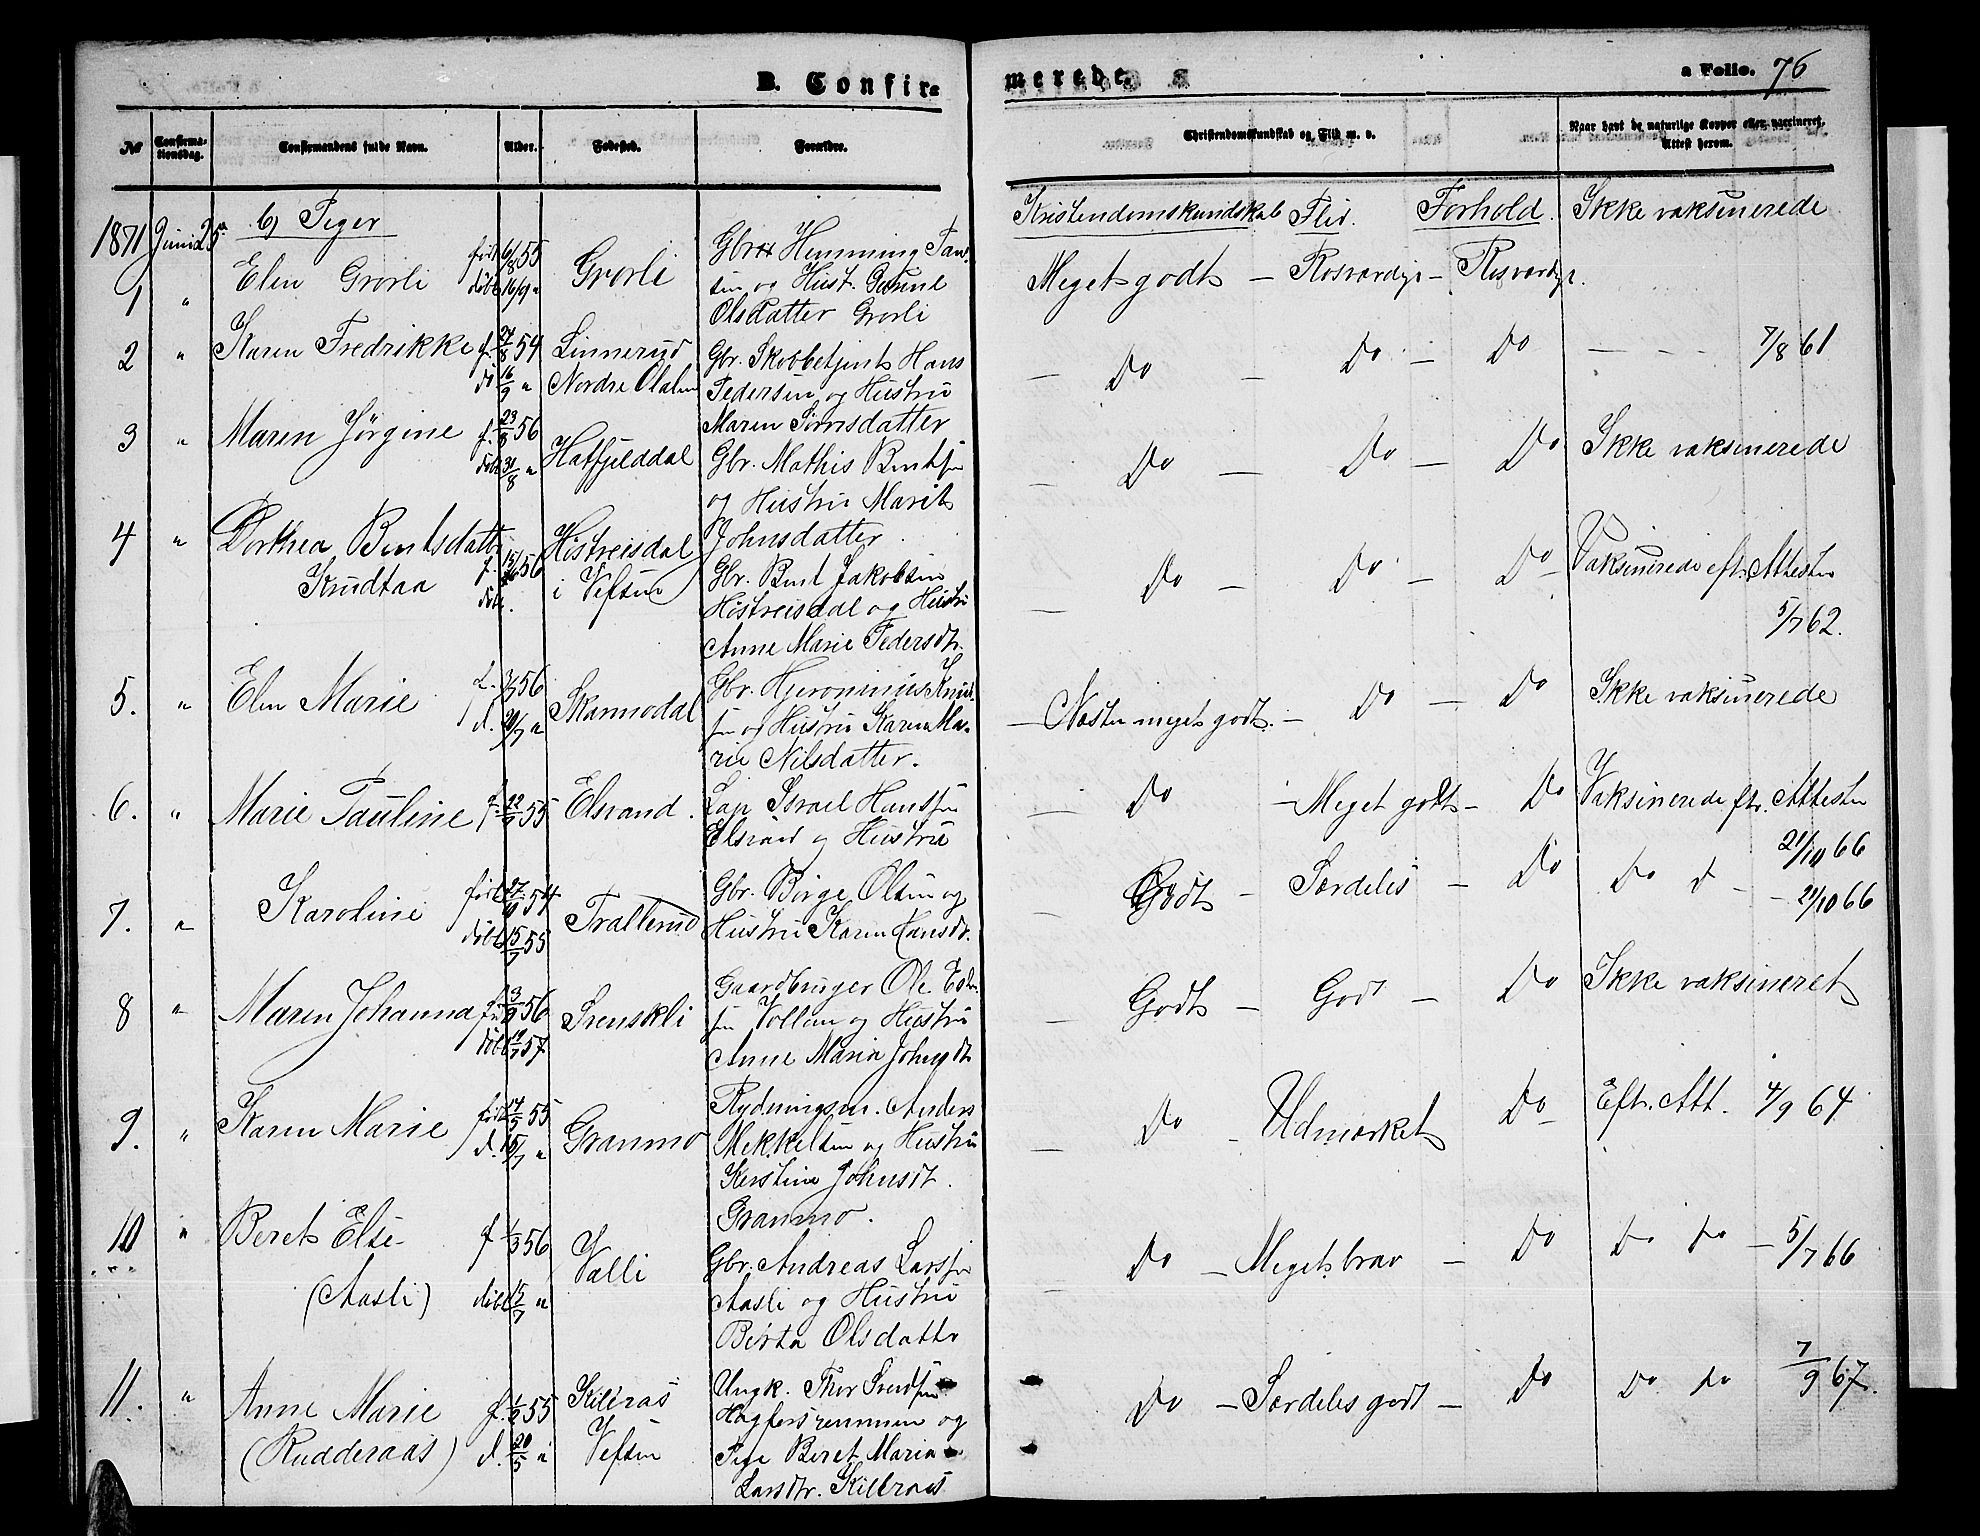 B. Confir-
merede.
a Folio. 76
№
Confirma-
tionsdag.
Confirmandens fulde Navn.
Alder.
Fødested.
Forældre.
Christendomskundskab og Flid m. v.
Naar havt de naturlige Kopper eller vaccineret,
Attest herom.
1871 Juni 25de b) Piger
Kristendomskundskab Flid. Forhold. Ikke vaksinerede
1 " Elen Grovli født 6/8 55 døbt 16/9 " Grovli
Gbr Hemming
sen og Hust.
Olsdatter Grovli
Meget godt — Rosværdig — Rosværdig.
2 " Karen Fredrikke f. 24/8 54 dø 16/9 " Linnerud
Nordre
Gbr. Hans
Pedersen og Hustru
Maren
— Do — Do — Do — — — 7/8 61
3 " Maren Jørgine f. 23/8 56 døbt 31/8 " Hatfjelddal
Gbr. Mathis Bentsen
og Hustru Marit
Johnsdatter
— Do — Do — Do Ikke vaksinerede
4 " Dorthea Bentsdatter
Krudtaa f. 56 døbt.
i Vefsen
Gbr. Bent Jakobsen
og Hustru
Anne Marie Pedersdtr.
— Do — Do — Do — Vaksinerede eft. Attester
5/7 62.
5. " Elen Marie f. 56 d. "
Skarmodal
Gbr. Hjeronimus Knud-
sen og Hustru Karen Ma-
rie Nilsdatter.
— Næsten meget godt. — Do — Do Ikke vaksinerede
6. " Marie Pauline f. 55 Elsvand.
Lap Israel Hansen
og Hustru
— Do — Meget godt — Do Vaksinerede eft. Attester
21/10 66
7. " Karoline født 54 døbt 15/7 55
Trallerud
Gbr. Børge Olsen og
Hustru Karen Hansdr.
— Godt — Særdeles — Do Do d — 21/10 66
8 " Maren Johanna 56 døbt 57
Svenskli
Gaardbruger Ole
sen Vollan og Hustru
Anne Maria Johnsdt
— Godt — Godt — Do Ikke vaksineret
9. " Karen Marie født 55 d. "
Granmo
Rydningsm. Anders
Mekkelsen og Hustru
Kerstine Johnsdt.
Granmo.
— Do — Udmærket Do — Eft. Att. 4/9 64
10 " Beret Else f 1/3 56
(Aasli) døbt "
Valli
Gbr. Andreas Larsen
Aasli og Hustru
Berta Olsdatter
Do — Meget brav — Do Do Do — 5/7 66
11. " Anne Marie f. 55
(Rudderaas) d. 20/5 "
Kilbraas
Vefsen
Ungk. Thor
og
Pige Beret Maria
Larsdtr. Kilbraas
Do — Særdeles godt — Do Do Do 7/9 67.